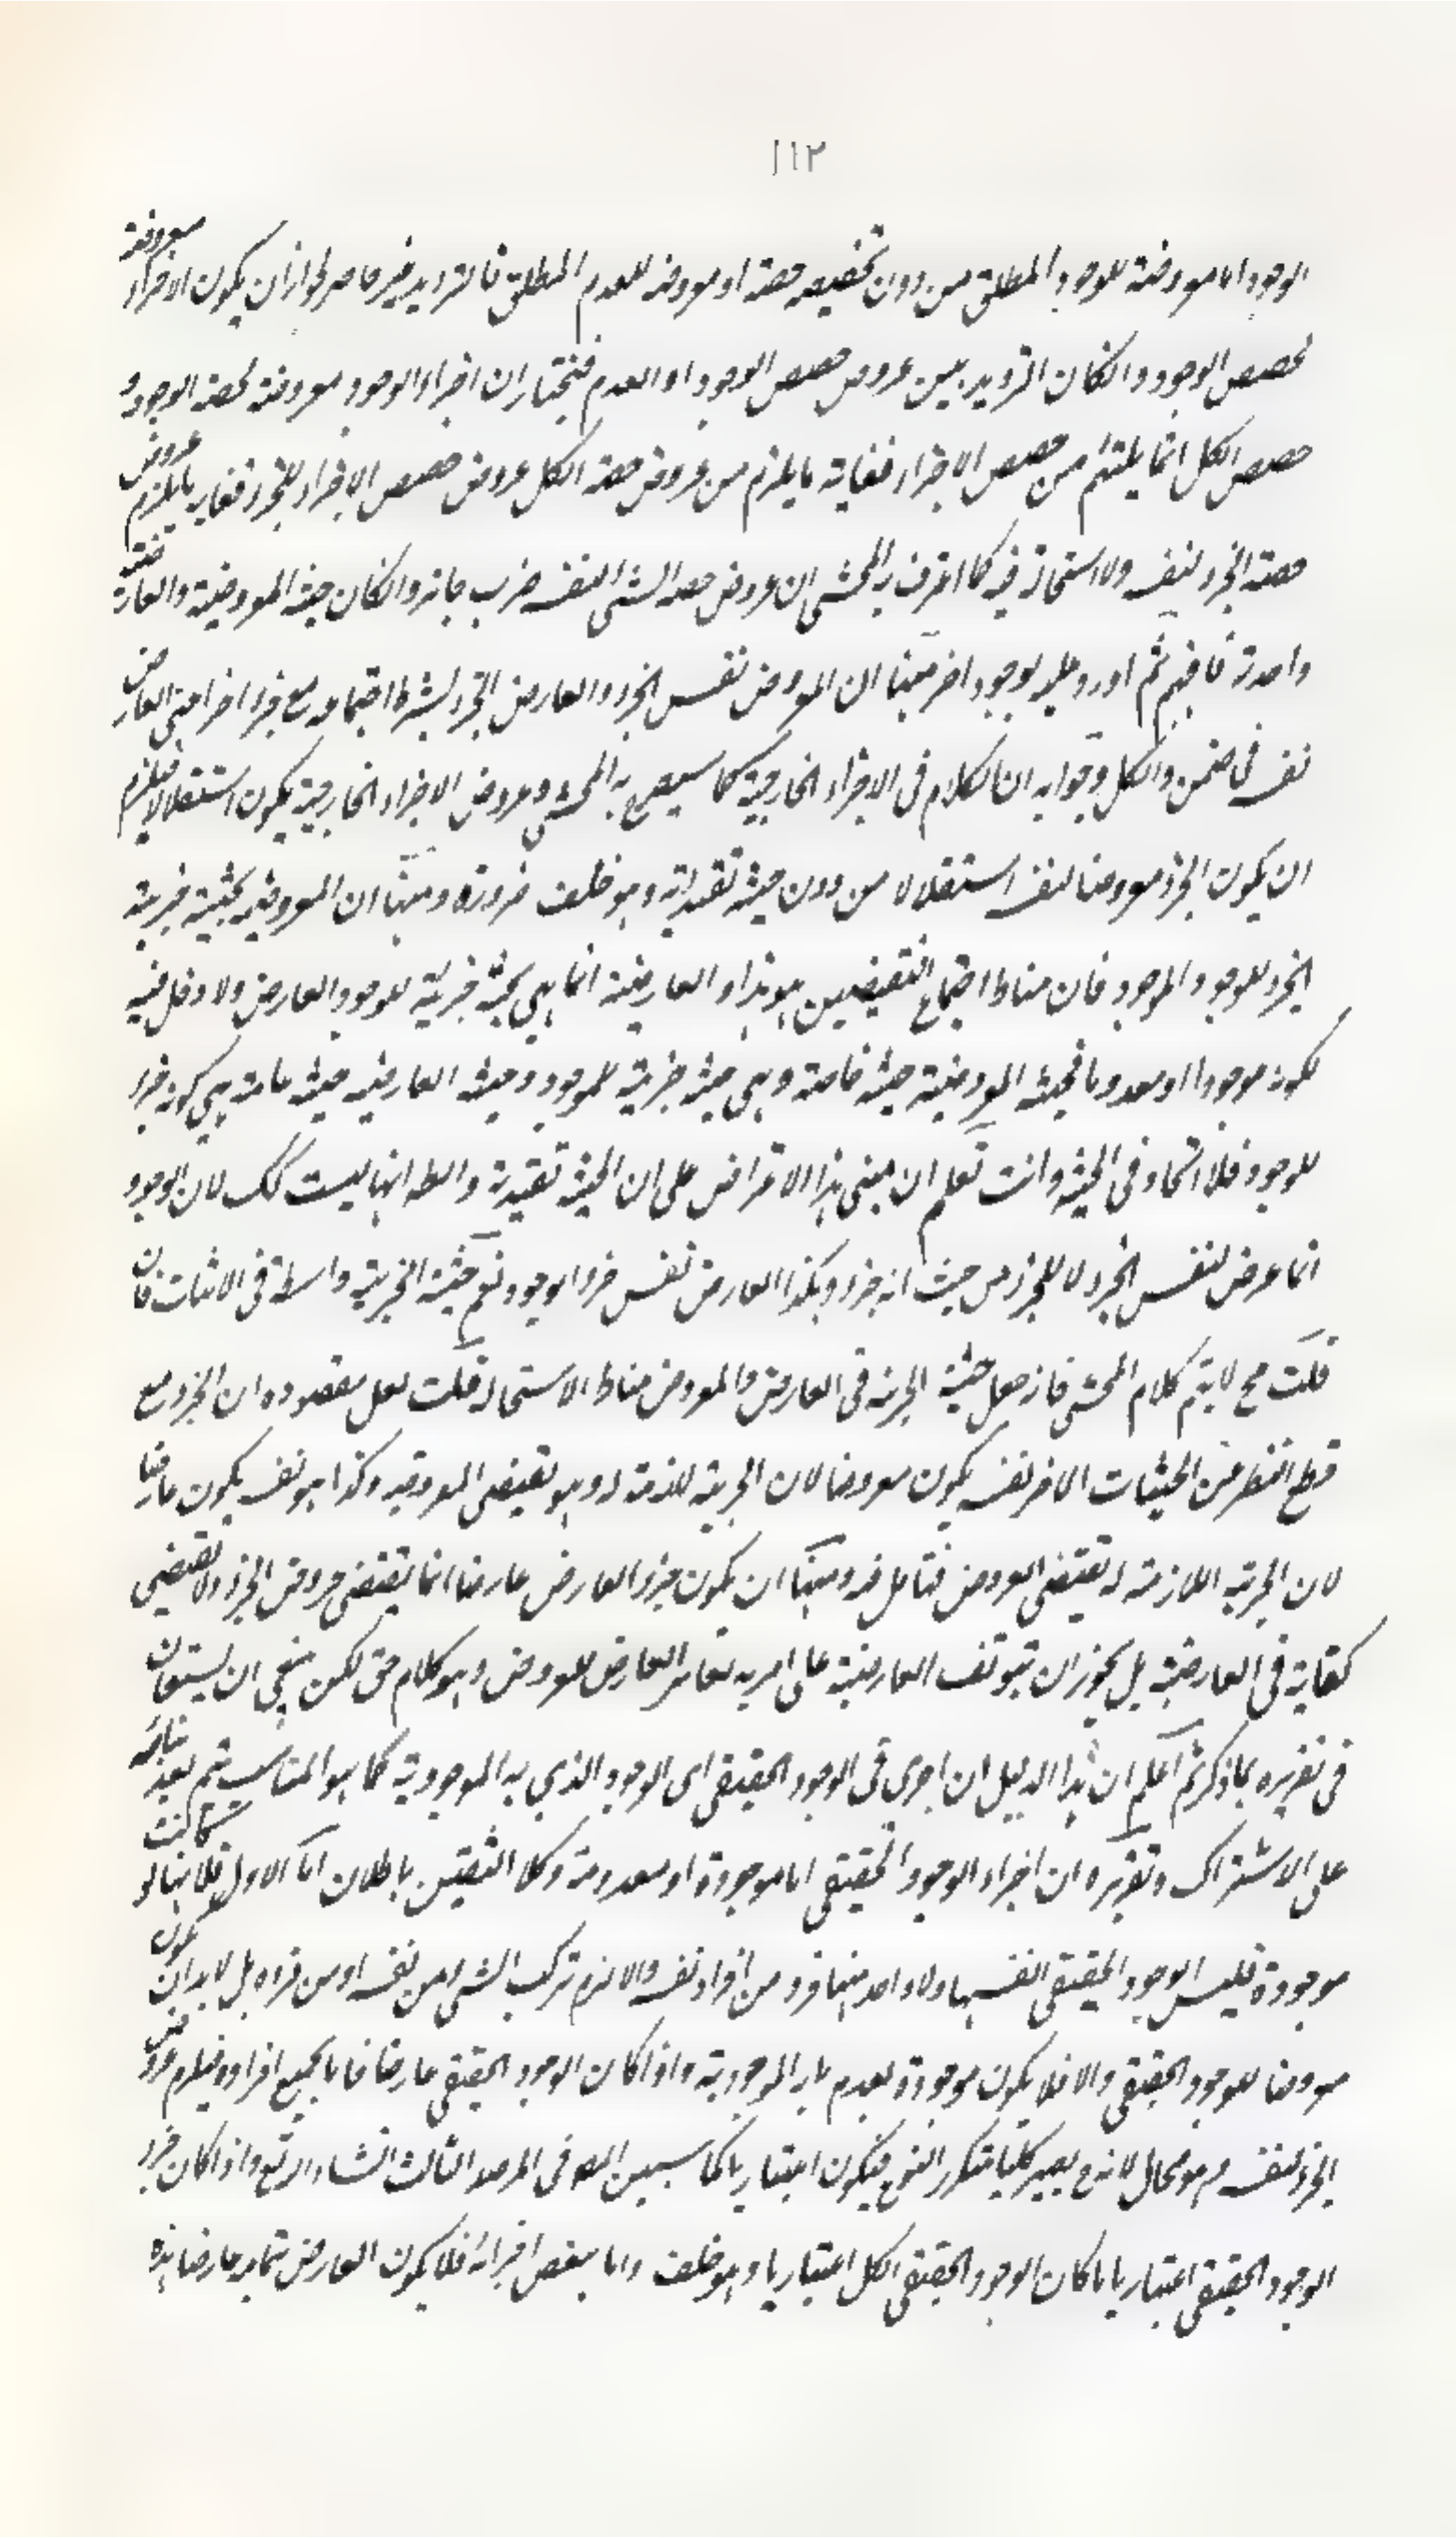 ١١٢
الوجود اما معروضة للوجود المطلق من دون تخصيص حصة او معروضة للعدم المطلق فالترديد غير حاصر لجواز ان يكون الاجزاء معروضة
لحصص الوجود وانكان الترديد بين عروض حصص الوجود او العدم فنختار ان اجزاء الوجود معروضة لحصة الوجود و
حصص الكل انما يلتئم من حصص الاجزاء فغاية ما يلزم من عروض حصة الكل عروض حصص الاجزاء للجزء فغاية ما يلزم عروض
حصة الجزء لنفسه ولا استحالة فيه كما اعترف به المحشي ان عروض حصة الشئ لنفسه ضرب جائز وانكان حيثية المعروضية والعارضية
واحدة فافهم ثم اورد عليه بوجوه اخر منها ان المعروض نفس الجزء والعارض الجزء بشرط اجتماعه مع جزء اخر اعني العارض
نفسه في ضمن الكل وجوابه ان الكلام في الاجزاء الخارجية كما سيصرح به المحشي وعروض الاجزاء الخارجية يكون استقلالا فيلزم
ان يكون الجزء معروضا لنفسه استقلالا من دون حيثية تقييدية وهو خلف ضرورة ومنها ان المعروضية بحيثية جزئية
الجزء للوجود الموجود فان مناط اجتماع النقيضين هو هذا والعارضية انما هي بحيثية جزئية للوجود العارض ولا دخل فيه
لكونه موجودا او معدوما فحيثية المعروضية حيثية خاصة وهي حيثية جزئية للموجود وحيثية العارضية حيثية عامة هي كونه جزء
للوجود فلا اتحاد في الحيثية وانت تعلم ان مبنى هذا الاعتراض على ان الحيثية تقييدية والظ انها ليست كك لان الوجود
انما عرض لنفس الجزء لا للجزء من حيث انه جزء وهكذا العارض نفس جزء الوجود نعم حيثية الجزئية واسطة في الاثبات فان
قلت مح لا يتم كلام المحشي فانه جعل حيثية الجزئية في العارض والمعروض مناط الاستحالة قلت لعل مقصوده ان الجزء مع
قطع النظر عن الحيثيات الاخر نفسه يكون معروضا لان الجزئية لازمة له وهو يقتضي المعروضية وكذا هو نفسه يكون عارضا
لان الجزئية اللازمة له تقتضي العروض فتامل فيه ومنها ان يكون جزء العارض عارضا انما يقتضي عروض الجزء ولا يقتضي
كفاية في العارضية بل يجوز ان تتوقف العارضية على امر به تغاير العارض للمعروض وهو كلام حق لكن ينبغي ان يستعان
في تقريره بما ذكر ثم اعلم ان هذا الدليل ان اجرى في الوجود الحقيقي اى الوجود الذي به الموجودية كما هو المناسب يتم بعد بنائه
على الاشتراك وتقريره ان اجزاء الوجود الحقيقي اما موجودة او معدومة وكلا الشقين باطلان اما الاول فلانها لو كانت
موجودة فليس الوجود الحقيقي انفسها ولا واحد منها فرد من افراد نفسه والا لزم تركب الشئ من نفسه او من فرده بل لا بد ان يكون
معروضا للوجود الحقيقي والا فلا يكون موجودة لعدم ما به الموجودية واذا كان الوجود الحقيقي عارضا فاما بجميع اجزائه فيلزم عروض
الجزء لنفسه وهو محال لانه ح يصير كليا متكرر النوع فيكون اعتباريا كما سيبين المص في المرصد الثالث انشاء الله تع واذا كان جزء
الوجود الحقيقي اعتباريا كان الوجود الحقيقي الكل اعتباريا وهو خلف واما ببعض اجزائه فلا يكون العارض بتمامه عارضا هذا